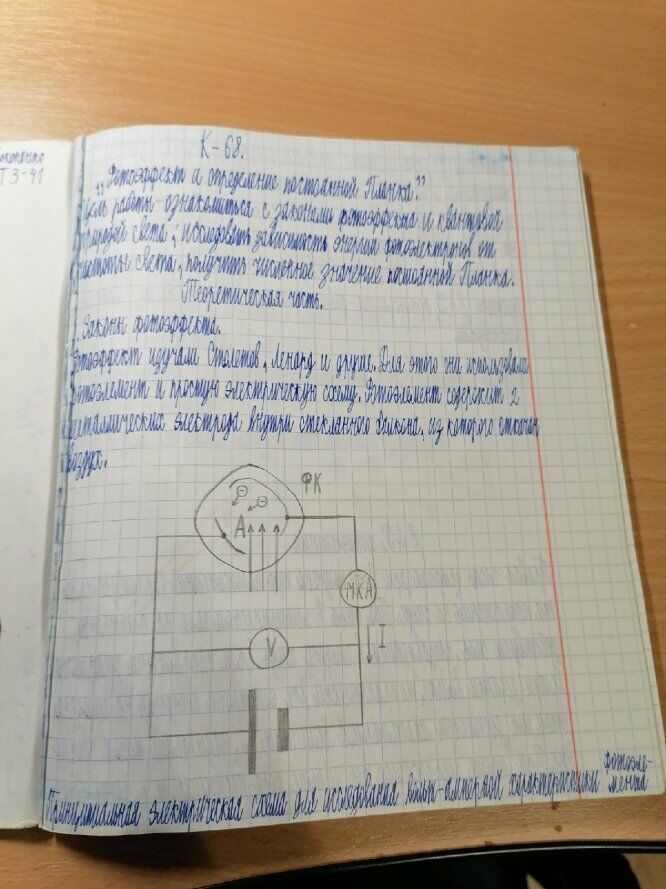 Т3-41
К-68.
„Фотоэффект и определение постоянной Планка.”
Цель работы-ознакомиться с законами фотоэффекта и квантовой
природой света; исследовать зависимость энергии фотоэлектронов от
частоты света; получить численное значение постоянной Планка.
Теоретическая часть.
Законы фотоэффекта.
Фотоэффект изучали Столетов, Ленард и другие. Для этого они использовали
фотоэлемент и простую электрическую схему. Фотоэлемент содержит 2
металлических электрода внутри стеклянного баллона, из которого откачан
воздух.
ФК
А
МКА
V
I
Принципиальная электрическая схема для исследования вольт-амперной характеристики фотоэле-
мента